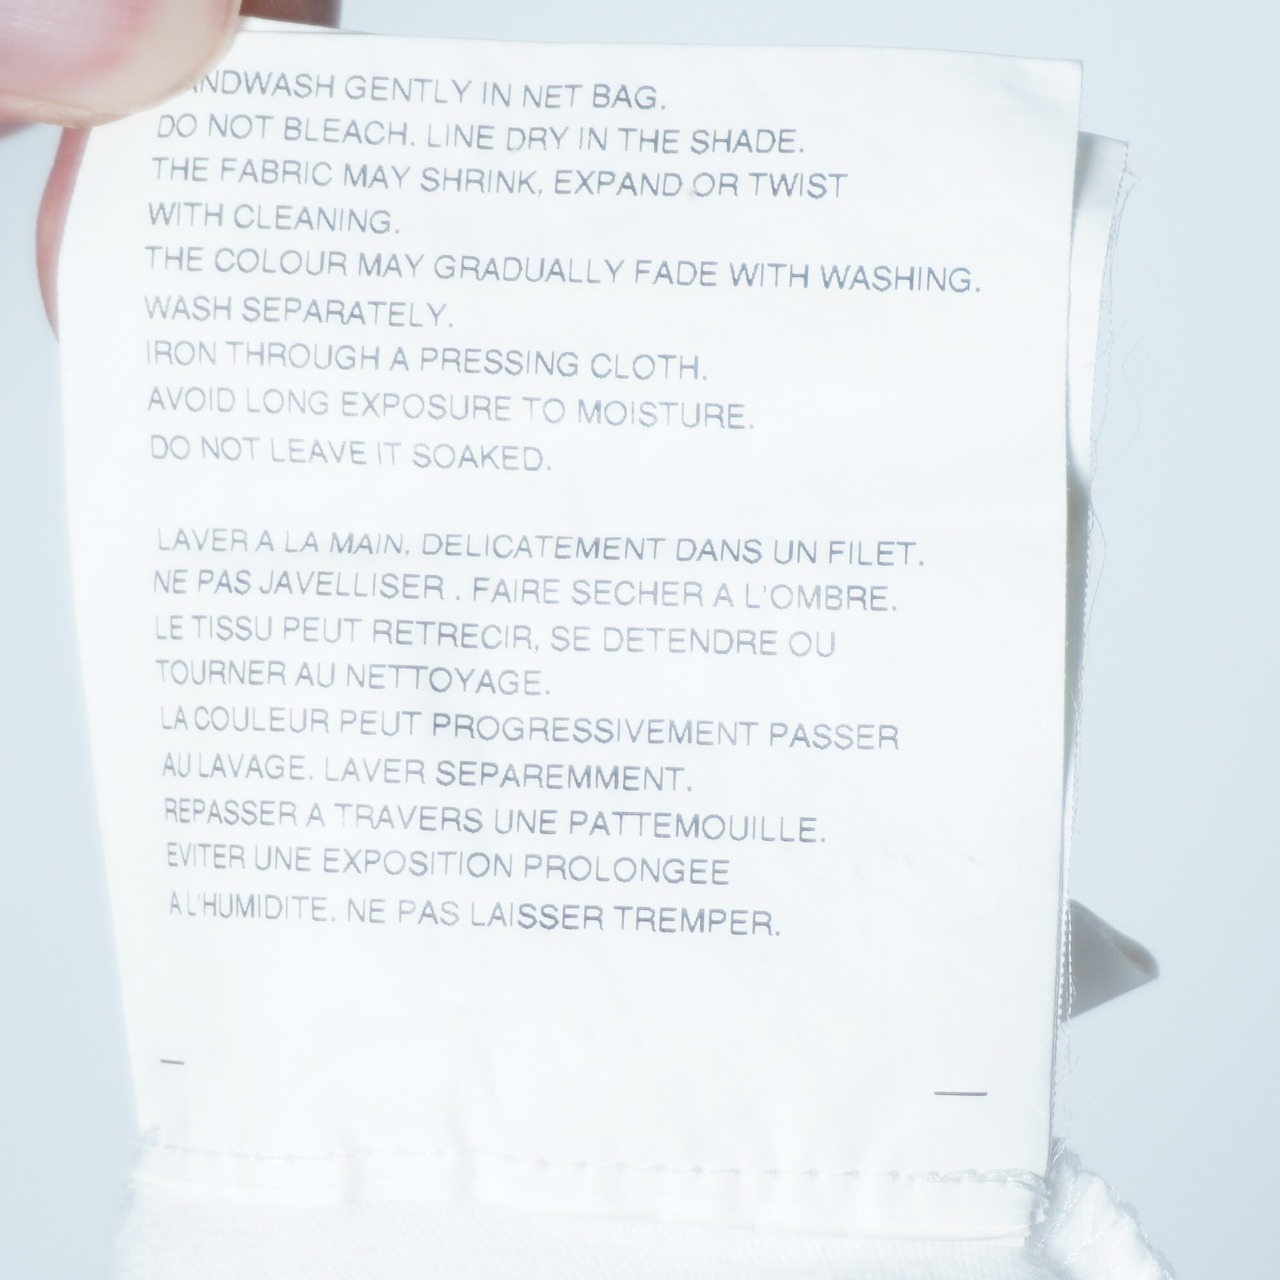 ANDWASH GENTLY IN NET BAG.
DO NOT BLEACH. LINE DRY IN THE SHADE.
THE FABRIC MAY SHRINK, EXPAND OR TWIST
WITH CLEANING.
THE COLOUR MAY GRADUALLY FADE WITH WASHING.
WASH SEPARATELY.
IRON THROUGH A PRESSING CLOTH.
AVOID LONG EXPOSURE TO MOISTURE.
DO NOT LEAVE IT SOAKED.
LAVER A LA MAIN, DELICATEMENT DANS UN FILET.
NE PAS JAVELLISER . FAIRE SECHER A L'OMBRE.
LE TISSU PEUT RETRECIR, SE DETENDRE OU
TOURNER AU NETTOYAGE.
LA COULEUR PEUT PROGRESSIVEMENT PASSER
AU LAVAGE. LAVER SEPAREMMENT.
REPASSER A TRAVERS UNE PATTEMOUILLE.
EVITER UNE EXPOSITION PROLONGEE
A L'HUMIDITE. NE PAS LAISSER TREMPER.